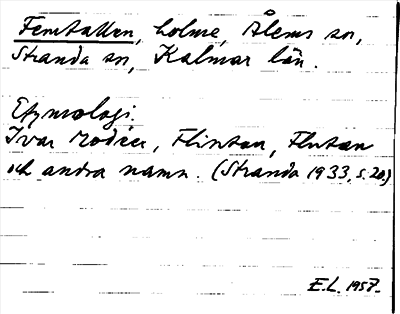 Femtallen, holme, Ålems sn,
Stranda sn, Kalmar län.
Etymologi.
Ivar Modéer, Flintan, Flutan
och andra namn. (Stranda 1933, s. 20)
E.L. 1957.